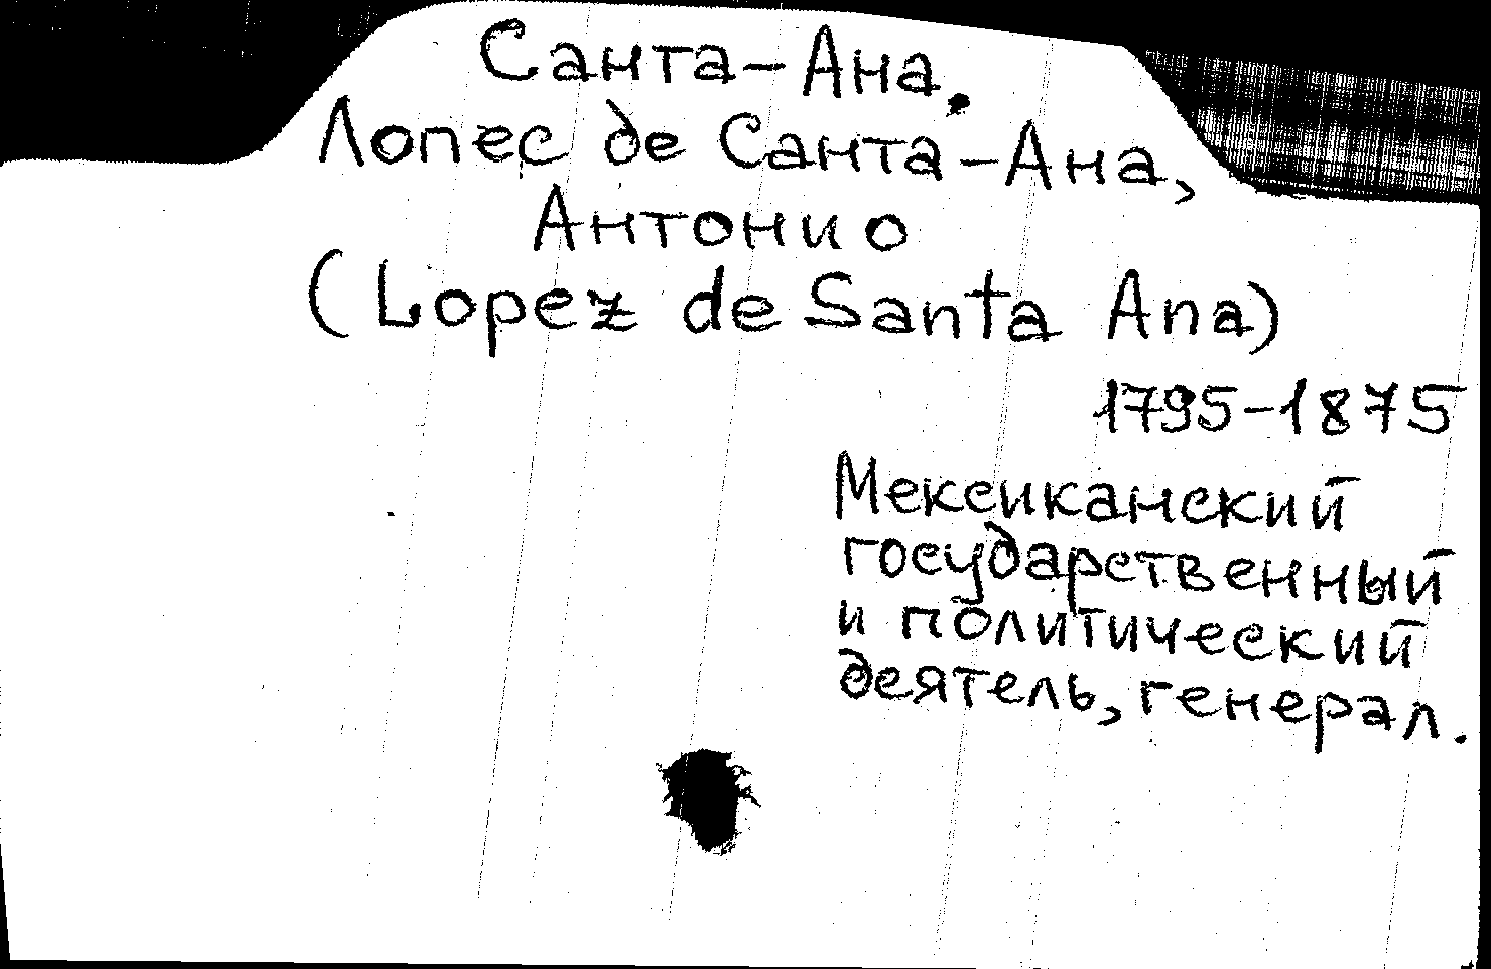 Санта-Ана.
Лопес де Санта-Ана,
Антонио
(Lopez de Santa Ana)
1795-1875
Мексиканский
государственный
и политический
деятель, генерал.